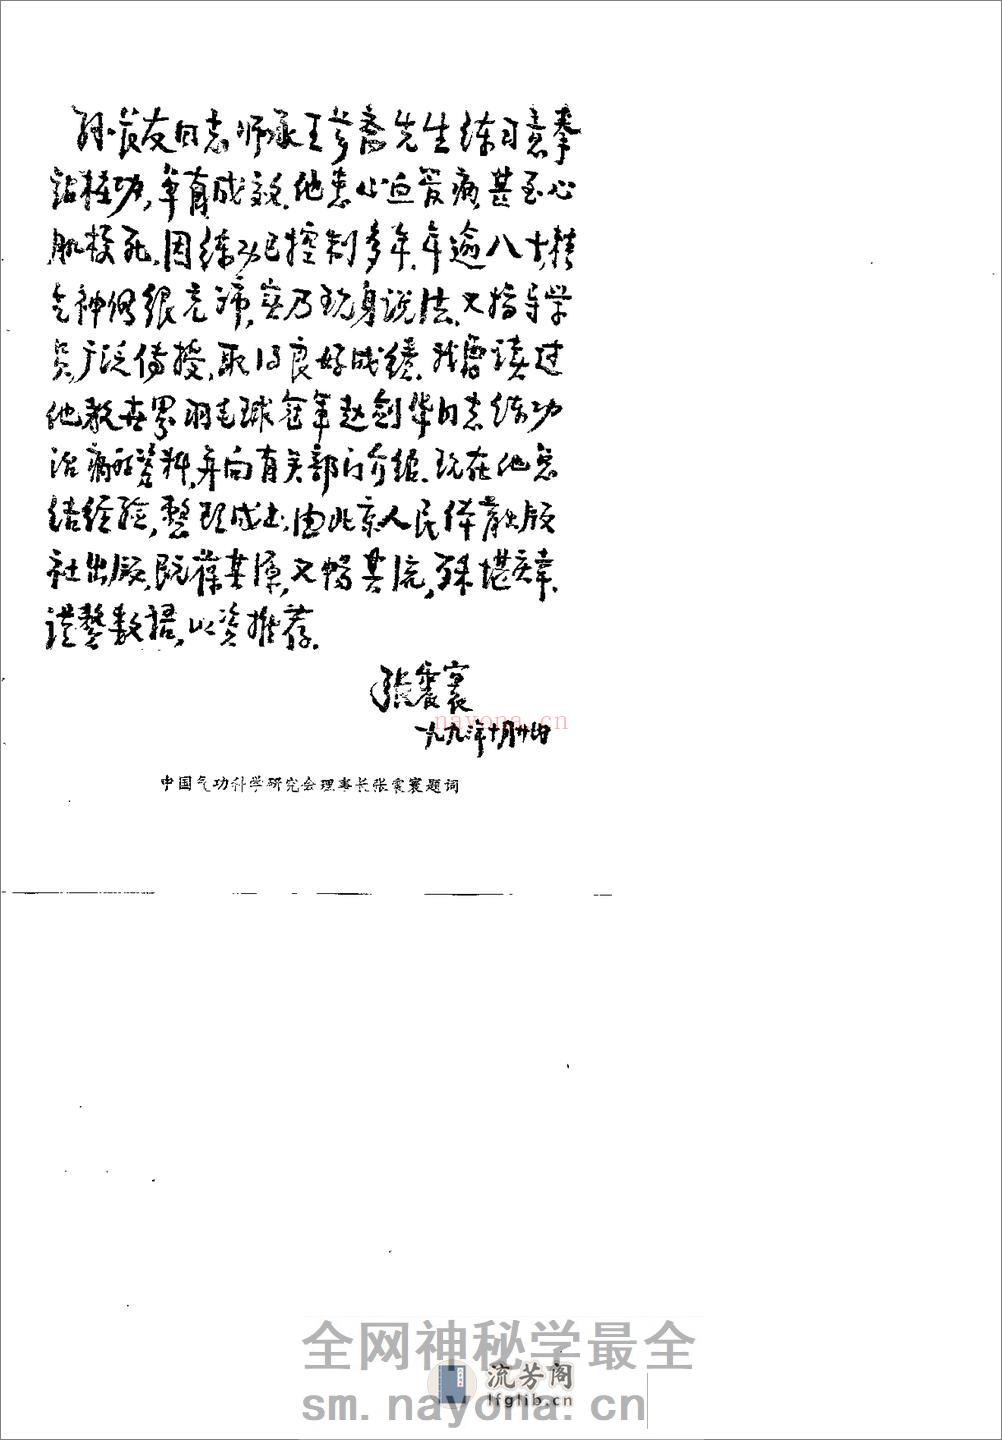 孙长友同志师承王芗斋先生练习意拳
站桩功,卓有成效.他患心血管病,甚至心
肌梗死,因练功已控制多年.年逾八十,精
气神仍很充沛,实乃现身说法.又指导学
员,广泛传授,取得良好成绩.我曾读过
他教世界羽毛球冠军赵剑华同志练功
治病的资料,并向有关部门介绍.现在他总
结经验,整理成书,由北京人民体育出版
社出版,既葆其源,又畅其流,殊堪庆幸.
谨赘数语,以资推荐.
张震寰
一九九二年十月廿四
nayona.cn
中国气功科学研究会理事长张震寰题词
全网神秘学最全
流芳阁
lfglib.cn
sm.nayona.cn